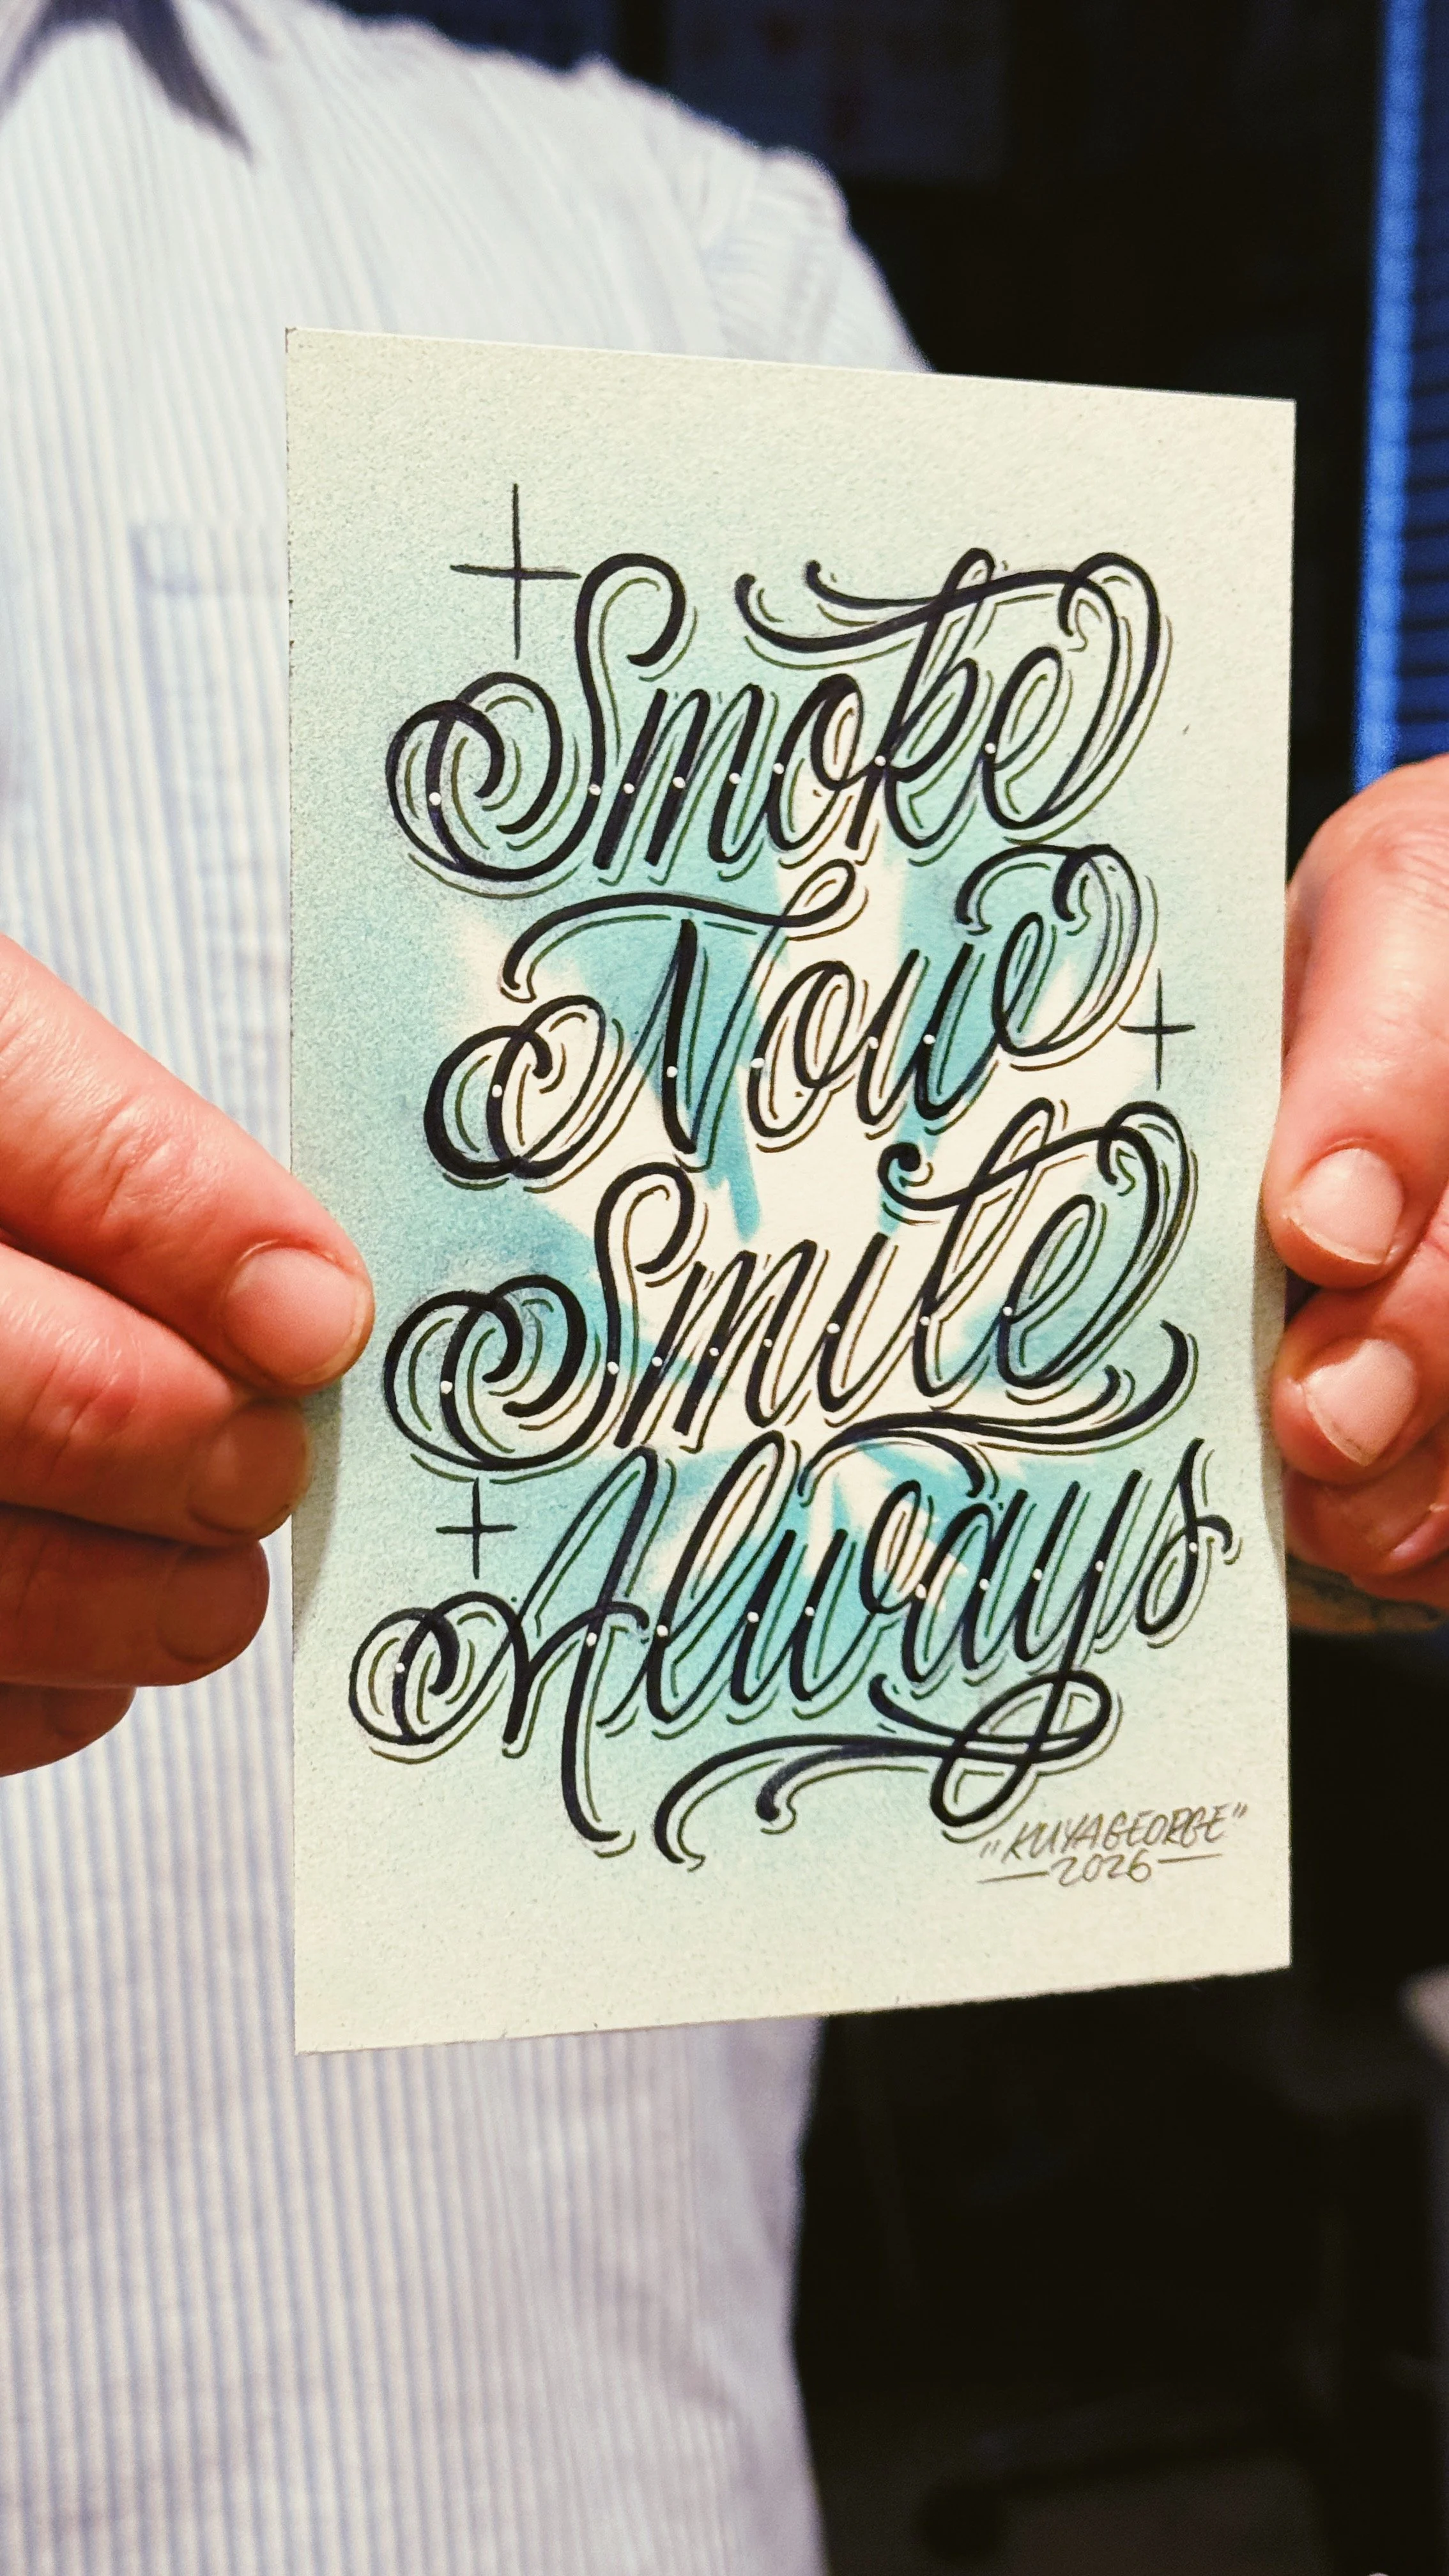 Smoke
Now
Smile
Always
"KUYAGEORGE"
2026